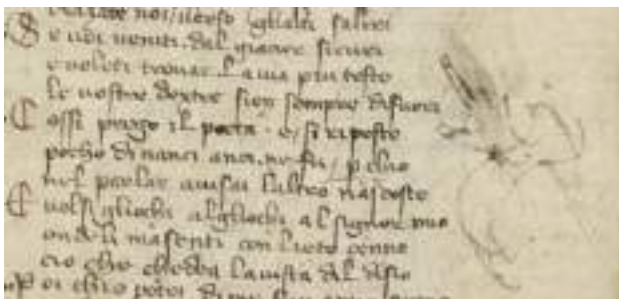 noi verso glialti saliri
S e udi veniti dal giacere sicuri
e voleti trovar la uia piu tosto
le uostre dextre sien sempre di fuori
C ossi prego il poeta e si riposto
pocho di nanci anoi ne fu p chio
nel parlar auisai laltro nascosto
E uolsi gliochi alglochi al signor mio
ondeli masenti con lieto cenno
cio che chiedea la uista del disio
P oi chio potei di me